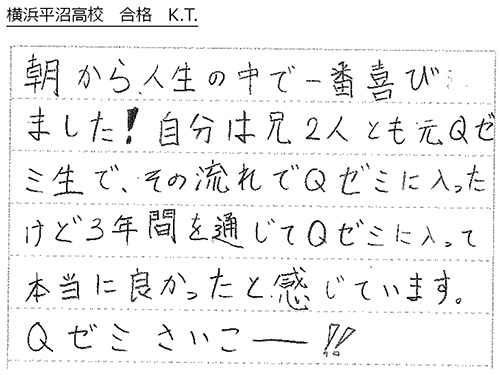 横浜平沼高校　合格　K.T.
朝から、人生の中で一番喜び
ました！自分は兄2人とも元Qゼ
ミ生で、その流れでQゼミに入った
けど3年間を通じてQゼミに入って
本当に良かったと感じています。
Qゼミさいこー!!